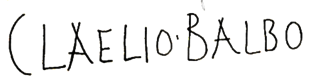 C LAELIO·BALBO